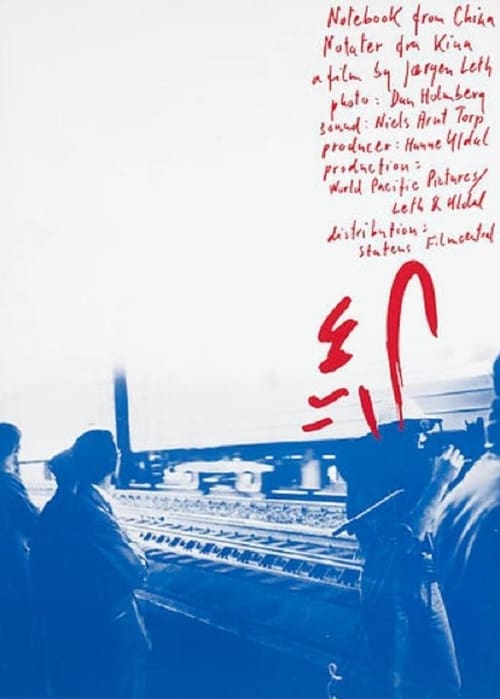 Notebook from China
Notater fra Kina
a film by Jørgen Leth
photo: Dan Holmberg
sound: Niels Arnt Torp
producer: Hanne Uldal
production:
World Pacific Pictures/
Leth & Uldal
distribution:
Statens Filmcentral